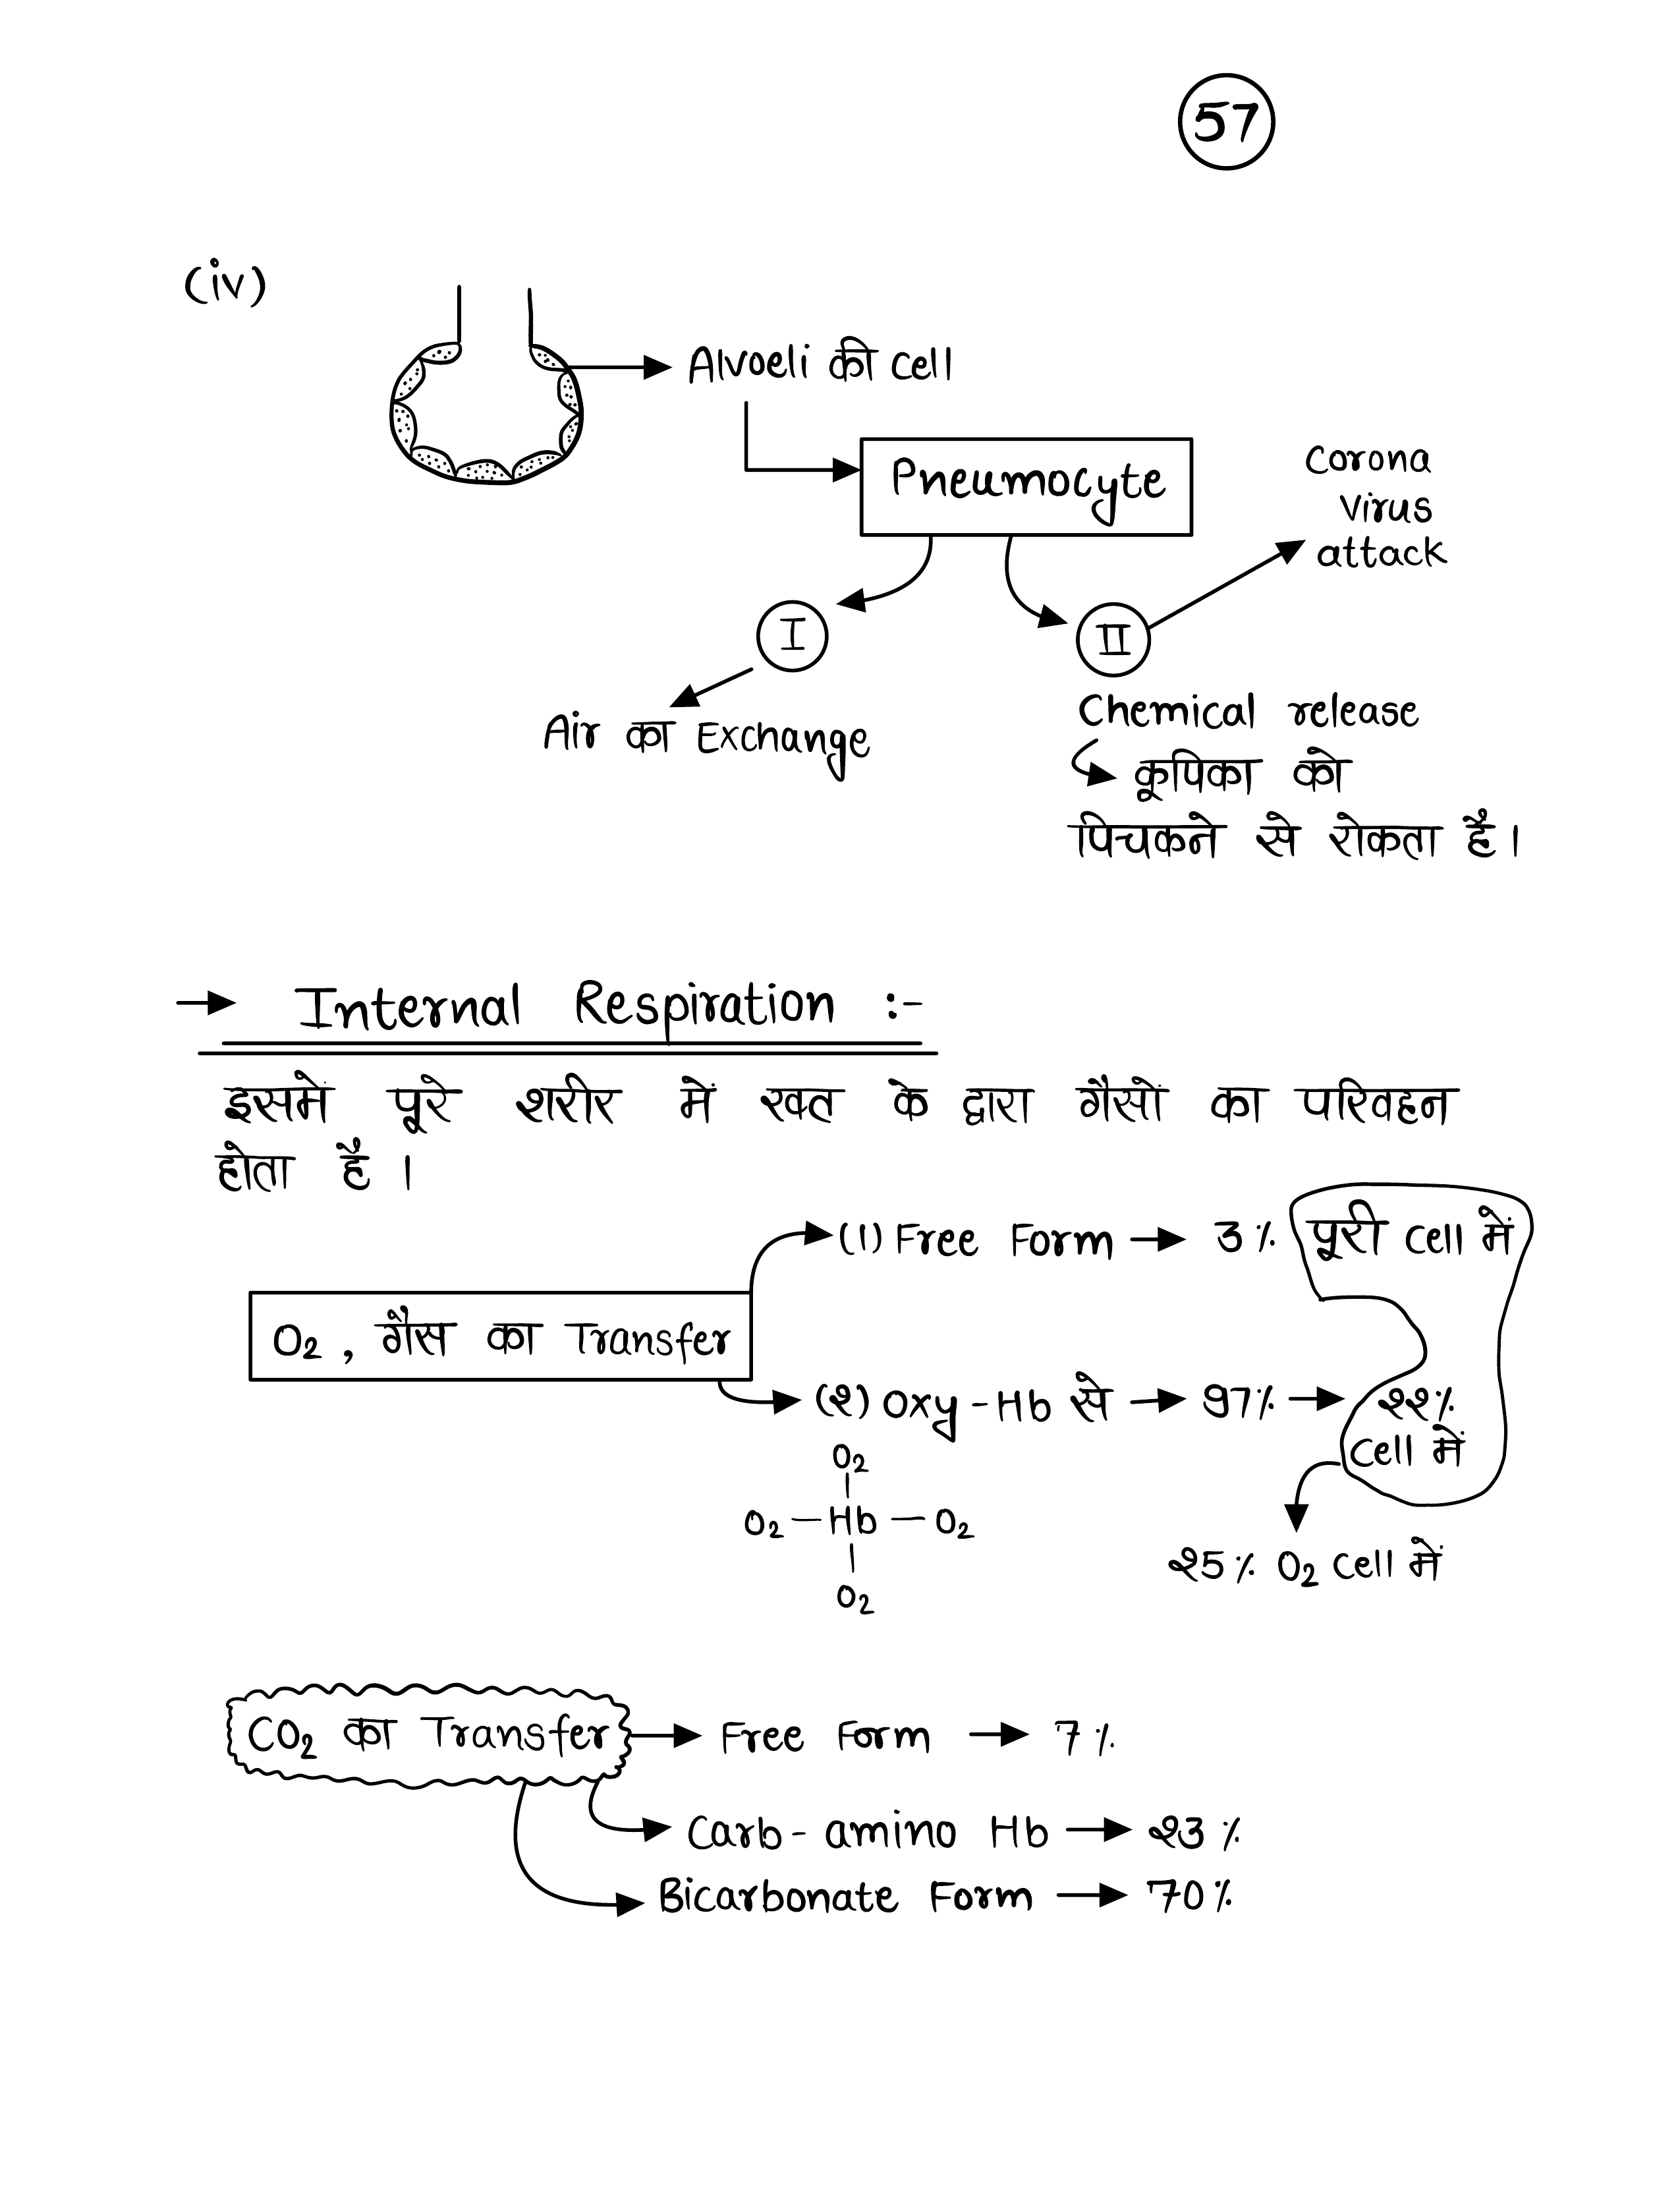 57
(iv)
Alvoeli की cell
Pneumocyte
Corona
Virus
attack
I
II
Air का Exchange
Chemical release
कूपिका को
पिचकने से रोकता है।
Internal Respiration :-
इसमें पूरे शरीर में रक्त के द्वारा गैसों का परिवहन
होता है।
(1) Free Form → 3% पूरी cell में
O₂, गैस का Transfer
(2) Oxy-Hb से → 97% → 22%
cell में
O₂
O₂ — Hb — O₂
O₂
25% O₂ cell में
CO₂ का Transfer → Free Form → 7%
Carb-amino Hb → 23%
Bicarbonate Form → 70%